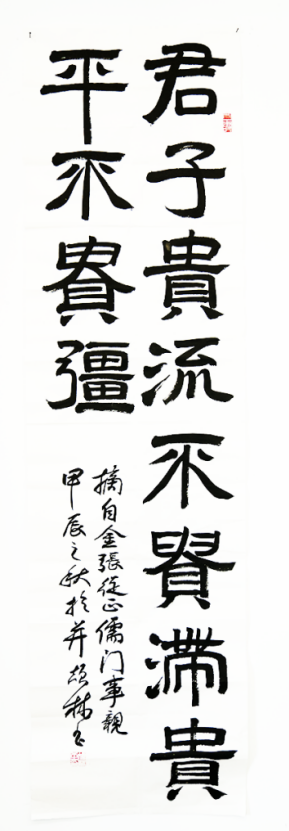 君子貴流不貴滯貴
平不貴彊
摘自金張從正儒门事親
甲辰之秋於并